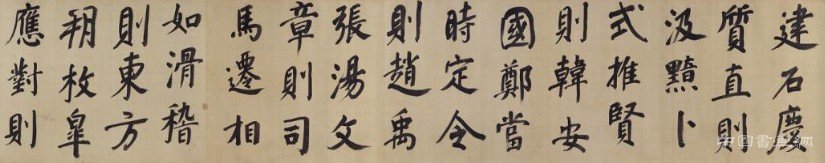 建石慶
質直則
汲黯卜
式推賢
則韓安
國鄭當
時定令
則趙禹
張湯文
章則司
馬遷相
如滑稽
則東方
朔枚皐
應對則